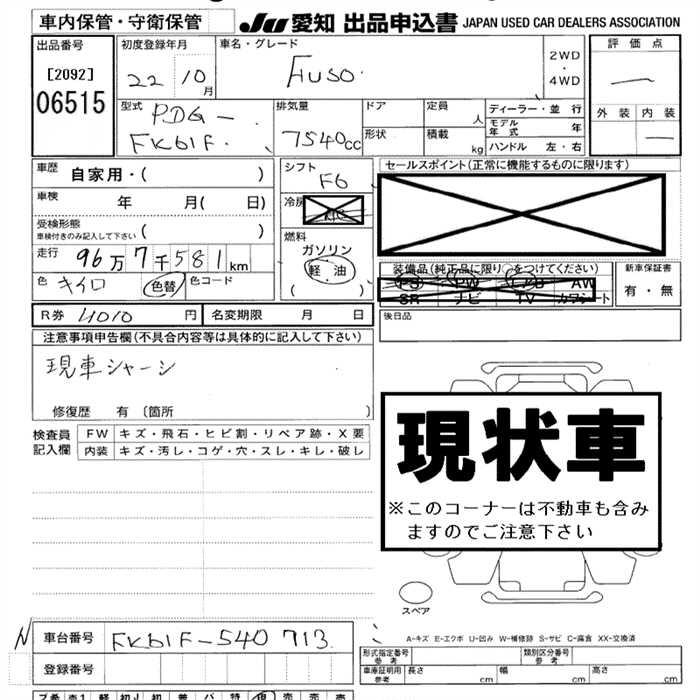 車内保管・守衛保管
JU 愛知 出品申込書 JAPAN USED CAR DEALERS ASSOCIATION
出品番号
[2092]
06515
初度登録年月
22 10月
車名・グレード
FUSO
2WD
・
4WD
評価点
—
外装 内装
—
型式
PDG-
FK61F.
排気量
7540cc
ドア
形状
定員 人
積載 kg
ディーラー・並行
モデル年式 年
ハンドル 左・右
車歴 自家用・( )
車検 年 月( 日)
受検形態
車検付きのみ記入して下さい ( )
走行 96万7千581km
色 キイロ 色替 色コード
シフト
F6
冷房
燃料
ガソリン
軽油
( )
セールスポイント(正常に機能するものに限ります)
装備品(純正品に限り○をつけてください)
PS PW エアB AW
SR ナビ TV カワシート
新車保証書
有・無
R券 4010円 名変期限 月 日
後日品
注意事項申告欄(不具合内容等は具体的に記入して下さい)
現車シャーシ
修復歴 有 〔箇所 〕
検査員記入欄
FW キズ・飛石・ヒビ割・リペア跡・X要
内装 キズ・汚レ・コゲ・穴・スレ・キレ・破レ
現状車
※このコーナーは不動車も含み
ますのでご注意下さい
スペア
A-キズ E-エクボ U-凹み W-補修跡 S-サビ C-腐食 XX-交換済
N
車台番号 FK61F-540713
登録番号
形式指定番号
参考
類別区分番号
参考
車庫証明用
参考
長さ cm 幅 cm 高さ cm